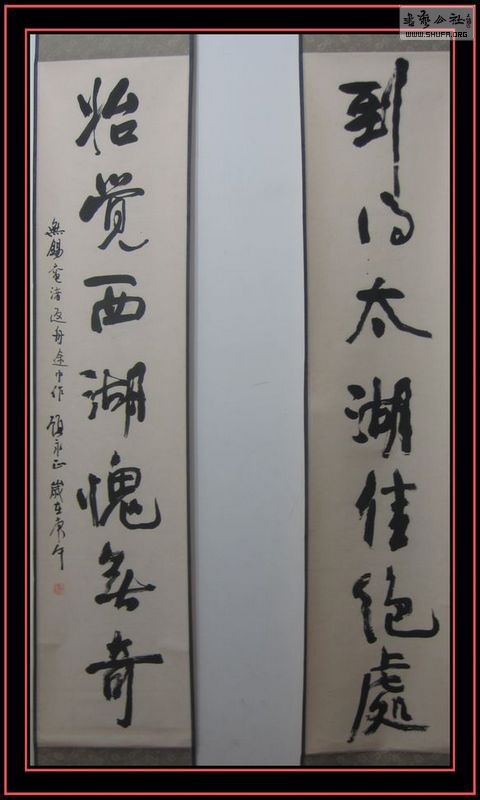 書藝公社
WWW.SHUFA.ORG
到得太湖佳絕處
始覺西湖愧無奇
無錫黿渚返舟途中作 顧永正 歲在庚午